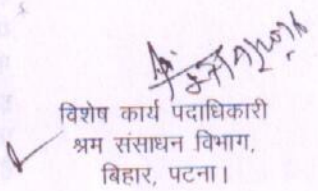 विशेष कार्य पदाधिकारी
श्रम संसाधन विभाग,
बिहार, पटना।